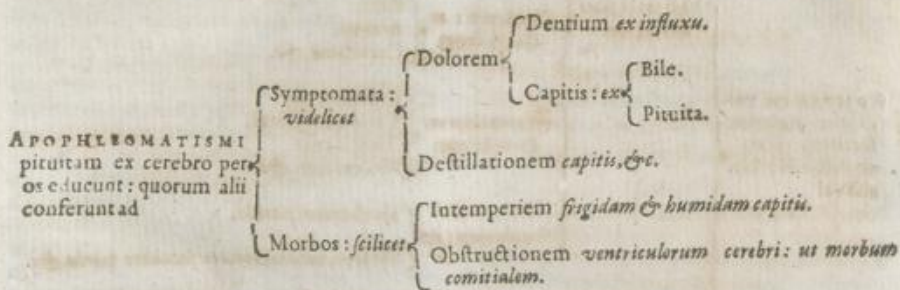 APOPHLEGMATISMI
pituitam ex cerebro per
os educunt: quorum alii
conferunt ad
Symptomata:
videlicet
Dolorem
Dentium ex influxu.
Capitis: ex
Bile.
Pituita.
Deſtillationem capitis, &c.
Morbos: ſcilicet
Intemperiem frigidam & humidam capitis.
Obſtructionem ventriculorum cerebri: ut morbum
comitialem.